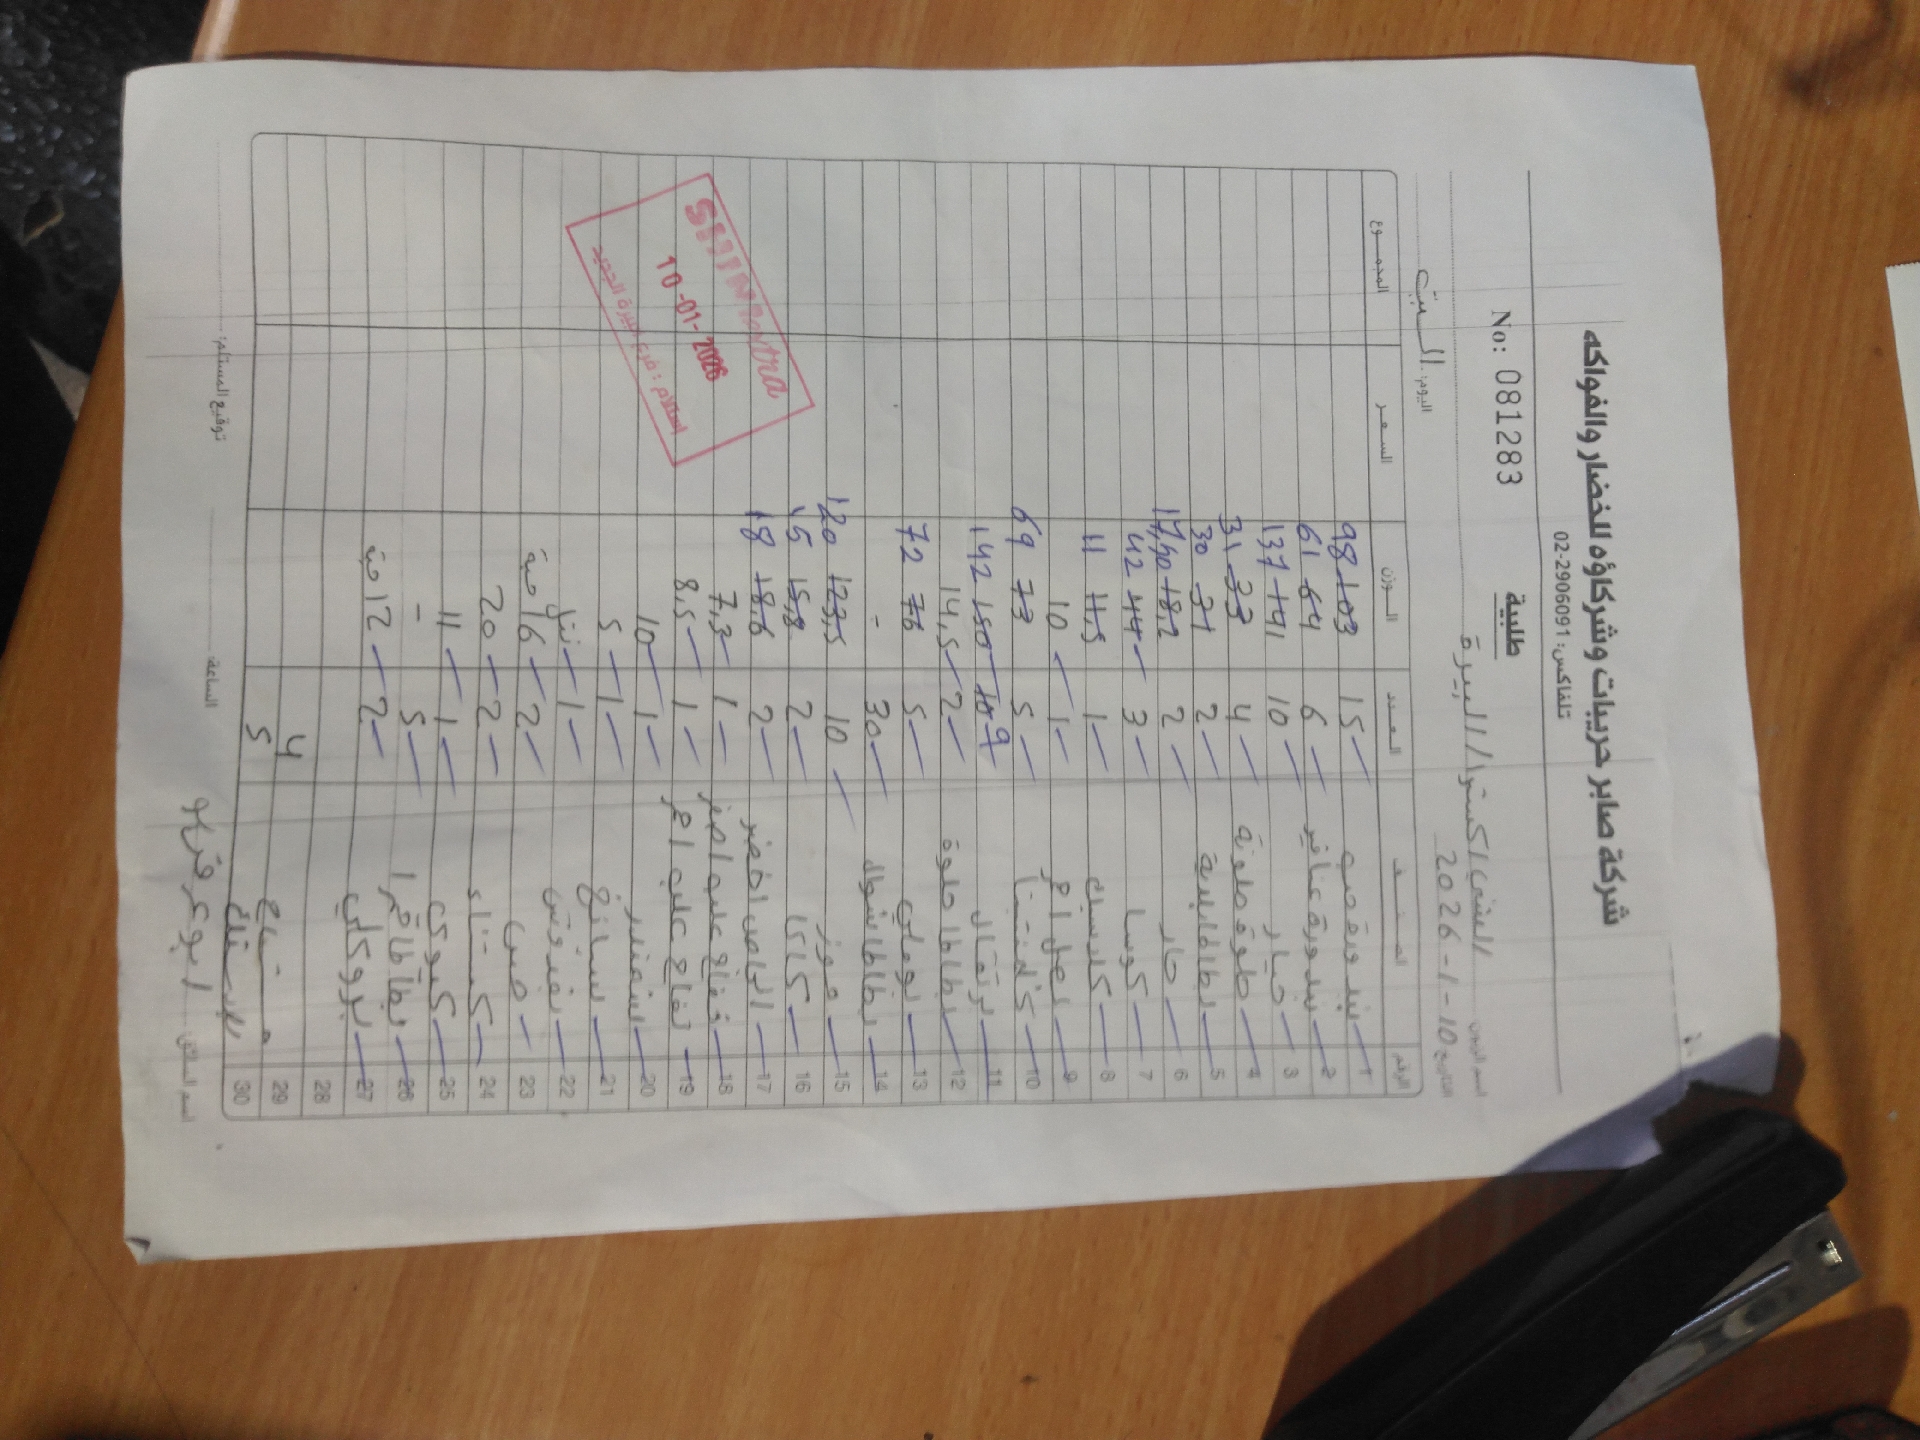 شركة صابر حريبات وشركاؤه للخضار والفواكه
تلفاكس: 02-2906091
طلبية
No: 081283
اسم الزبون الشني اكسترا / البيرة
التاريخ 10-1-2026 اليوم: السبت
الرقم الصنف العدد الوزن السعر المجموع
1 بندورة 15 98 103
2 بندورة عناقيد 6 61 64
3 خيار 10 137 141
4 ملونة 4 31 33
5 بطاطا 2 30 31
6 حار 2 17,40 18,2
7 كوسا 3 42 44
8 1 11 11,5
9 بصل احمر 1 10
10 كلمنتينا 5 69 73
11 برتقال 10 9 142 150
12 بطاطا حلوة 2 14,5
13 بوملي 5 72 76
14 بطاطا شوال 30 -
15 موز 10 120 123,5
16 كاكا 2 15 15,8
17 اخضر 2 18 18,6
18 تفاح اصفر 1 7,3
19 تفاح احمر 1 8,5
20 شمندر 1 10
21 سبانخ 1 5
22 1
23 خس 2 16 حبة
24 كستناء 2 20
25 كيوي 1 11
26 بطاطا 5 -
27 بروكلي 2 12 حبة
28
29 4
30 5
SHINI Extra
10-01-2026
استلام : فرع البيرة الجديد
اسم السائق ابو
الساعة:
توقيع المستلم: